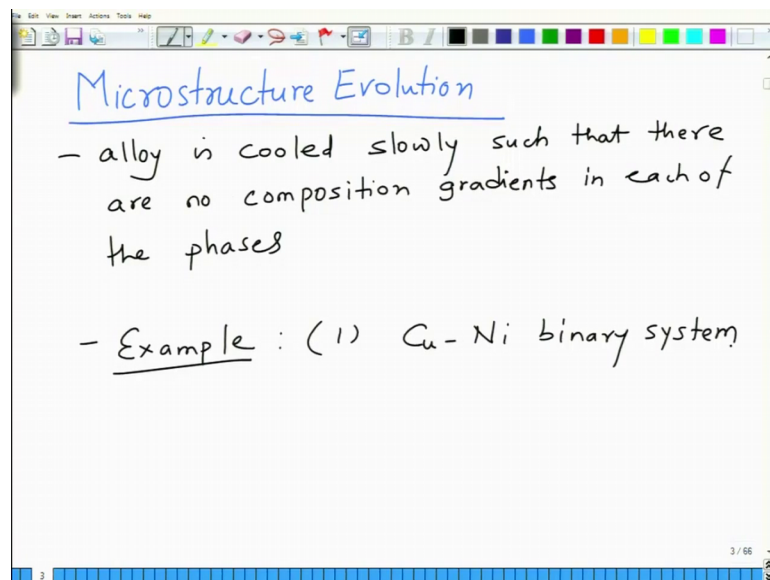 File Edit View Insert Actions Tools Help
B I
Microstructure Evolution
- alloy is cooled slowly such that there
are no composition gradients in each of
the phases
- Example : (1) Cu - Ni binary system
3 / 66
3